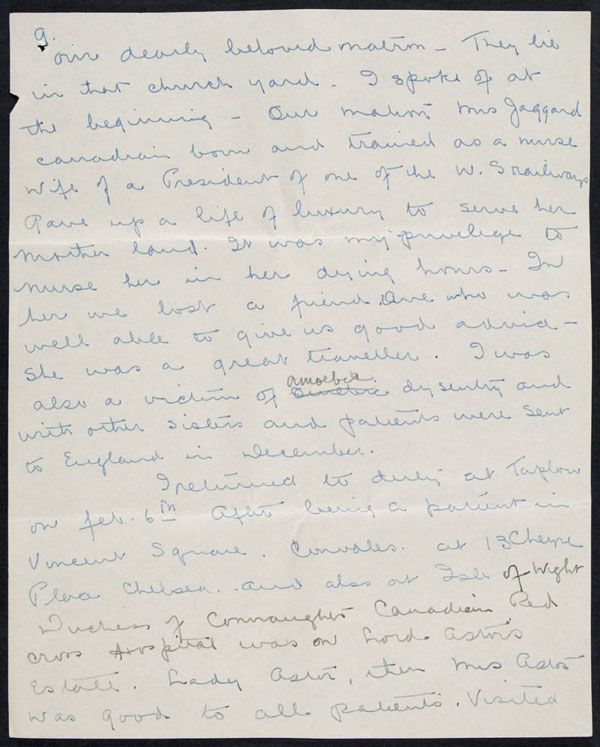 9
our dearly beloved matron - They lie
in that church yard - I spoke of at
the beginning - Our matron Mrs Jaggard
canadian born and trained as a nurse
wife of a President of one of the W. S railways
Gave up a life of luxury to serve her
mother land. It was my privelege to
nurse her in her dying hours - In
her we lost a friend. One who was
well able to give us good advice -
She was a great traveller. I was
amoebic
also a victim of dysentry and
with other sisters and patients were sent
to England in December.
I returned to duty at Taplow
on feb. 6th After being a patient in
Vincent Square. Convales. at 13 Cheyne
Place Chelsea. and also at Isle of Wight
Duchess of Connaughts Canadian Red
cross Hospital was on Lord Astor's
Estate. Lady Astor, then Mrs Astor
was good to all patients. Visited